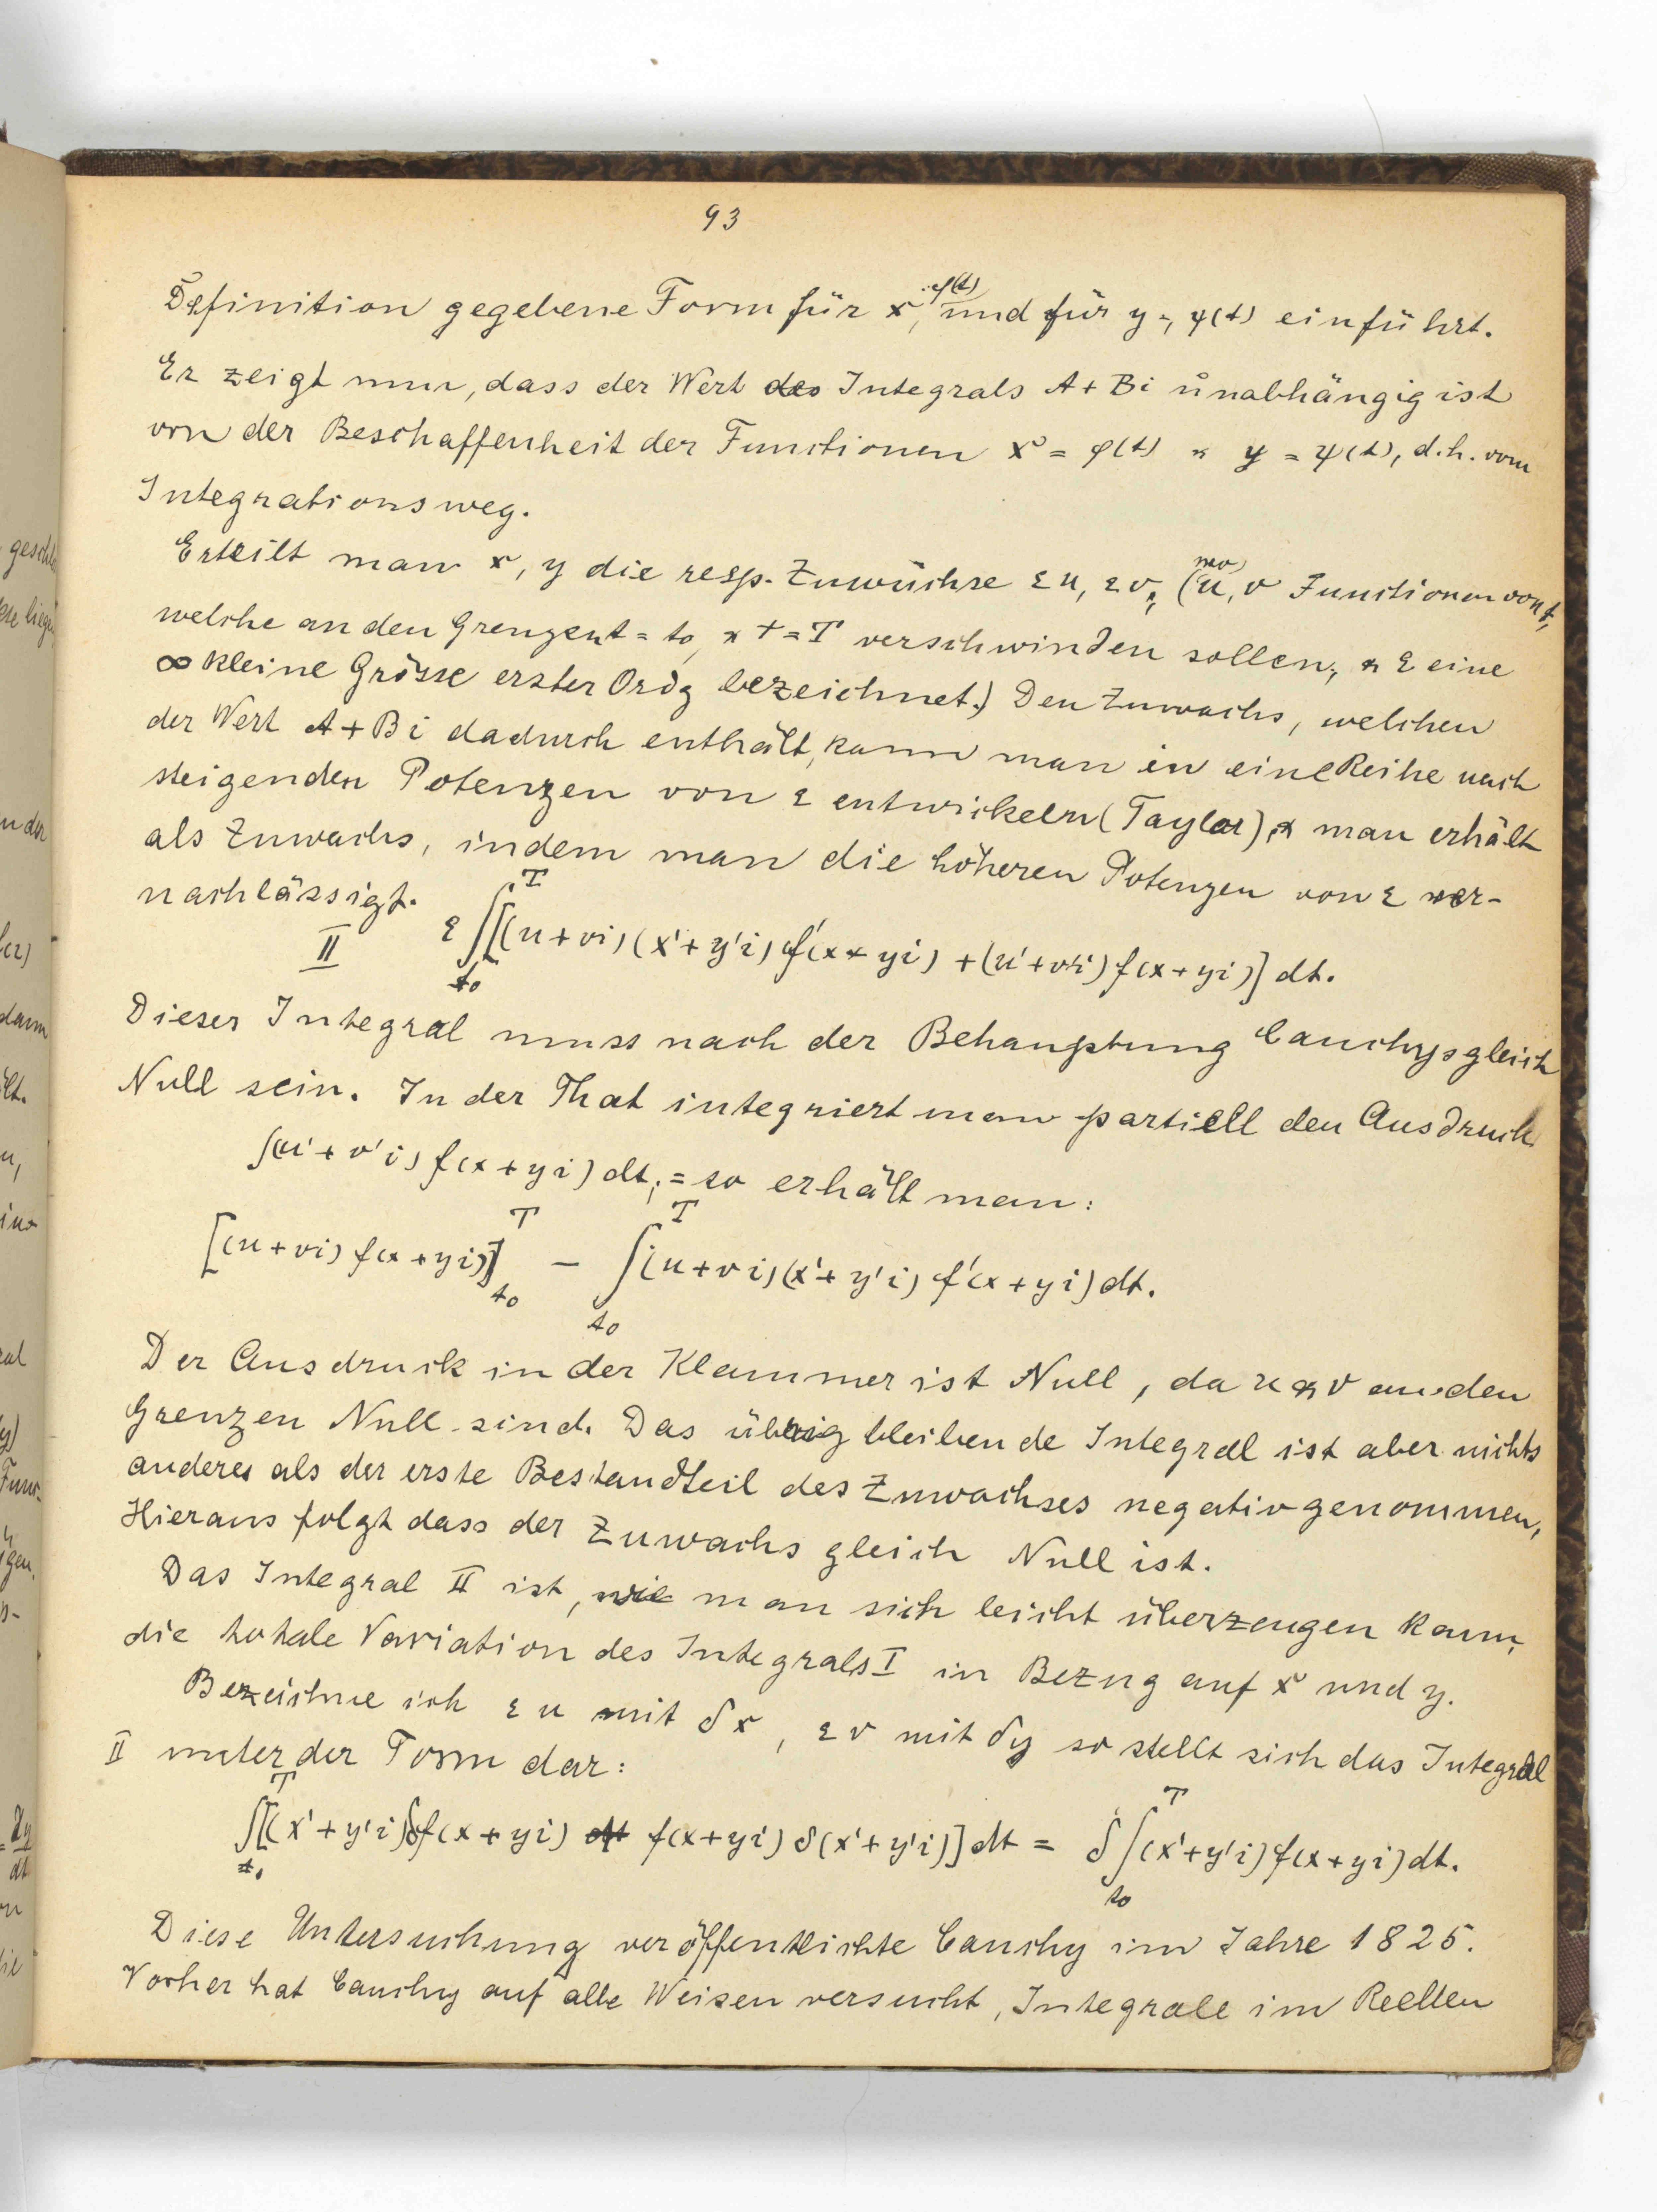 93
Definition gegebene Form für x = φ(t), und für y = ψ(t) einführt.
Er zeigt nun, dass der Wert des Integrals A + Bi unabhängig ist
von der Beschaffenheit der Functionen x = φ(t) & y = ψ(t), d.h. vom
Integrationsweg.
Erteilt man x, y die resp. Zuwüchse εu, εv, (wo u, v Functionen von t,
welche an den Grenzen t = t₀, & t = T verschwinden sollen, & ε eine
∞ kleine Grösse erster Ordg bezeichnet.) Den Zuwachs, welchen
der Wert A + Bi dadurch enthält, kann man in eine Reihe nach
steigenden Potenzen von ε entwickeln (Taylor), & man erhält
als Zuwachs, indem man die höheren Potenzen von ε ver-
nachlässigt.
II ε ∫_{t₀}^{T} [(u + vi)(x' + y'i) f'(x + yi) + (u' + v'i) f(x + yi)] dt.
Dieser Integral muss nach der Behauptung Cauchys gleich
Null sein. In der That integriert man partiell den Ausdruck
∫(u' + v'i) f(x + yi) dt, = so erhält man:
[(u + vi) f(x + yi)]_{t₀}^{T} − ∫_{t₀}^{T} (u + vi)(x' + y'i) f'(x + yi) dt.
Der Ausdruck in der Klammer ist Null, da u & v an den
Grenzen Null sind. Das übrig bleibende Integral ist aber nichts
anderes als der erste Bestandteil des Zuwachses negativ genommen,
Hieraus folgt dass der Zuwachs gleich Null ist.
Das Integral II ist, wie man sich leicht überzeugen kann,
die totale Variation des Integrals I in Bezug auf x und y.
Bezeichne ich εu mit δx, εv mit δy so stellt sich das Integral
II unter der Form dar:
∫_{t₀}^{T} [(x' + y'i) δf(x + yi) + f(x + yi) δ(x' + y'i)] dt = δ ∫_{t₀}^{T} (x' + y'i) f(x + yi) dt.
Diese Untersuchung veröffentlichte Cauchy im Jahre 1825.
Vorher hat Cauchy auf alle Weisen versucht, Integrale im Reellen